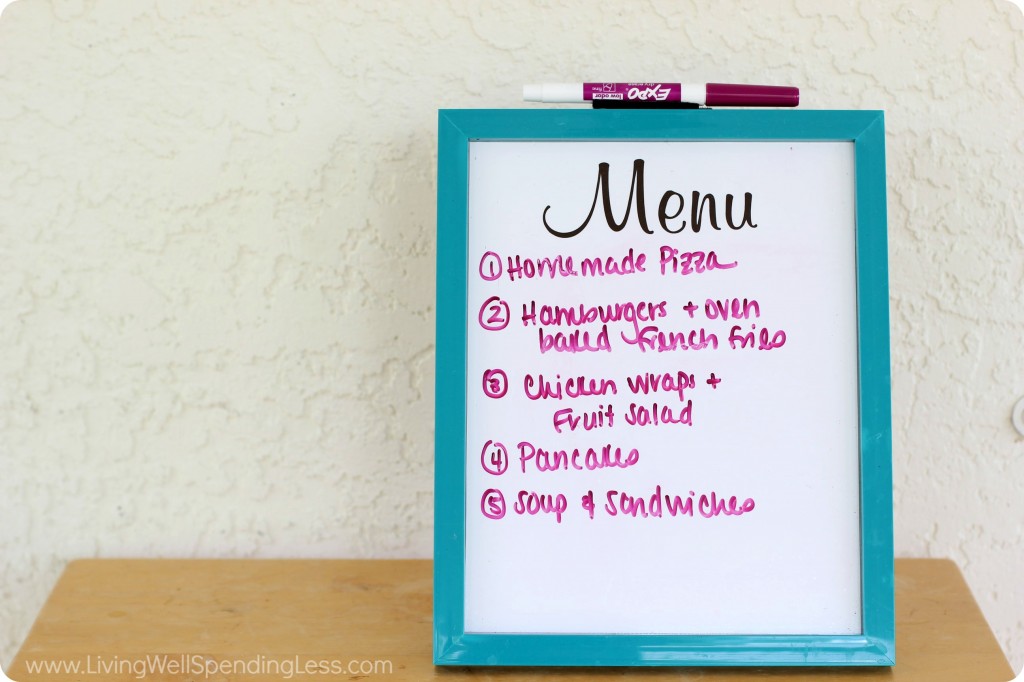 EXPO
low odor
Menu
① Homemade Pizza
② Hamburgers + oven
baked French Fries
③ Chicken wraps +
Fruit Salad
④ Pancakes
⑤ Soup & Sandwiches
www.LivingWellSpendingLess.com